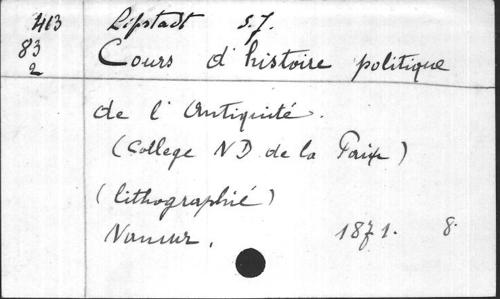 413 Lipstadt S.J.
83 Cours d'histoire politique
2
de l'Antiquité.
(College ND de la Paix)
(lithographié)
Namur, 1871. 8.